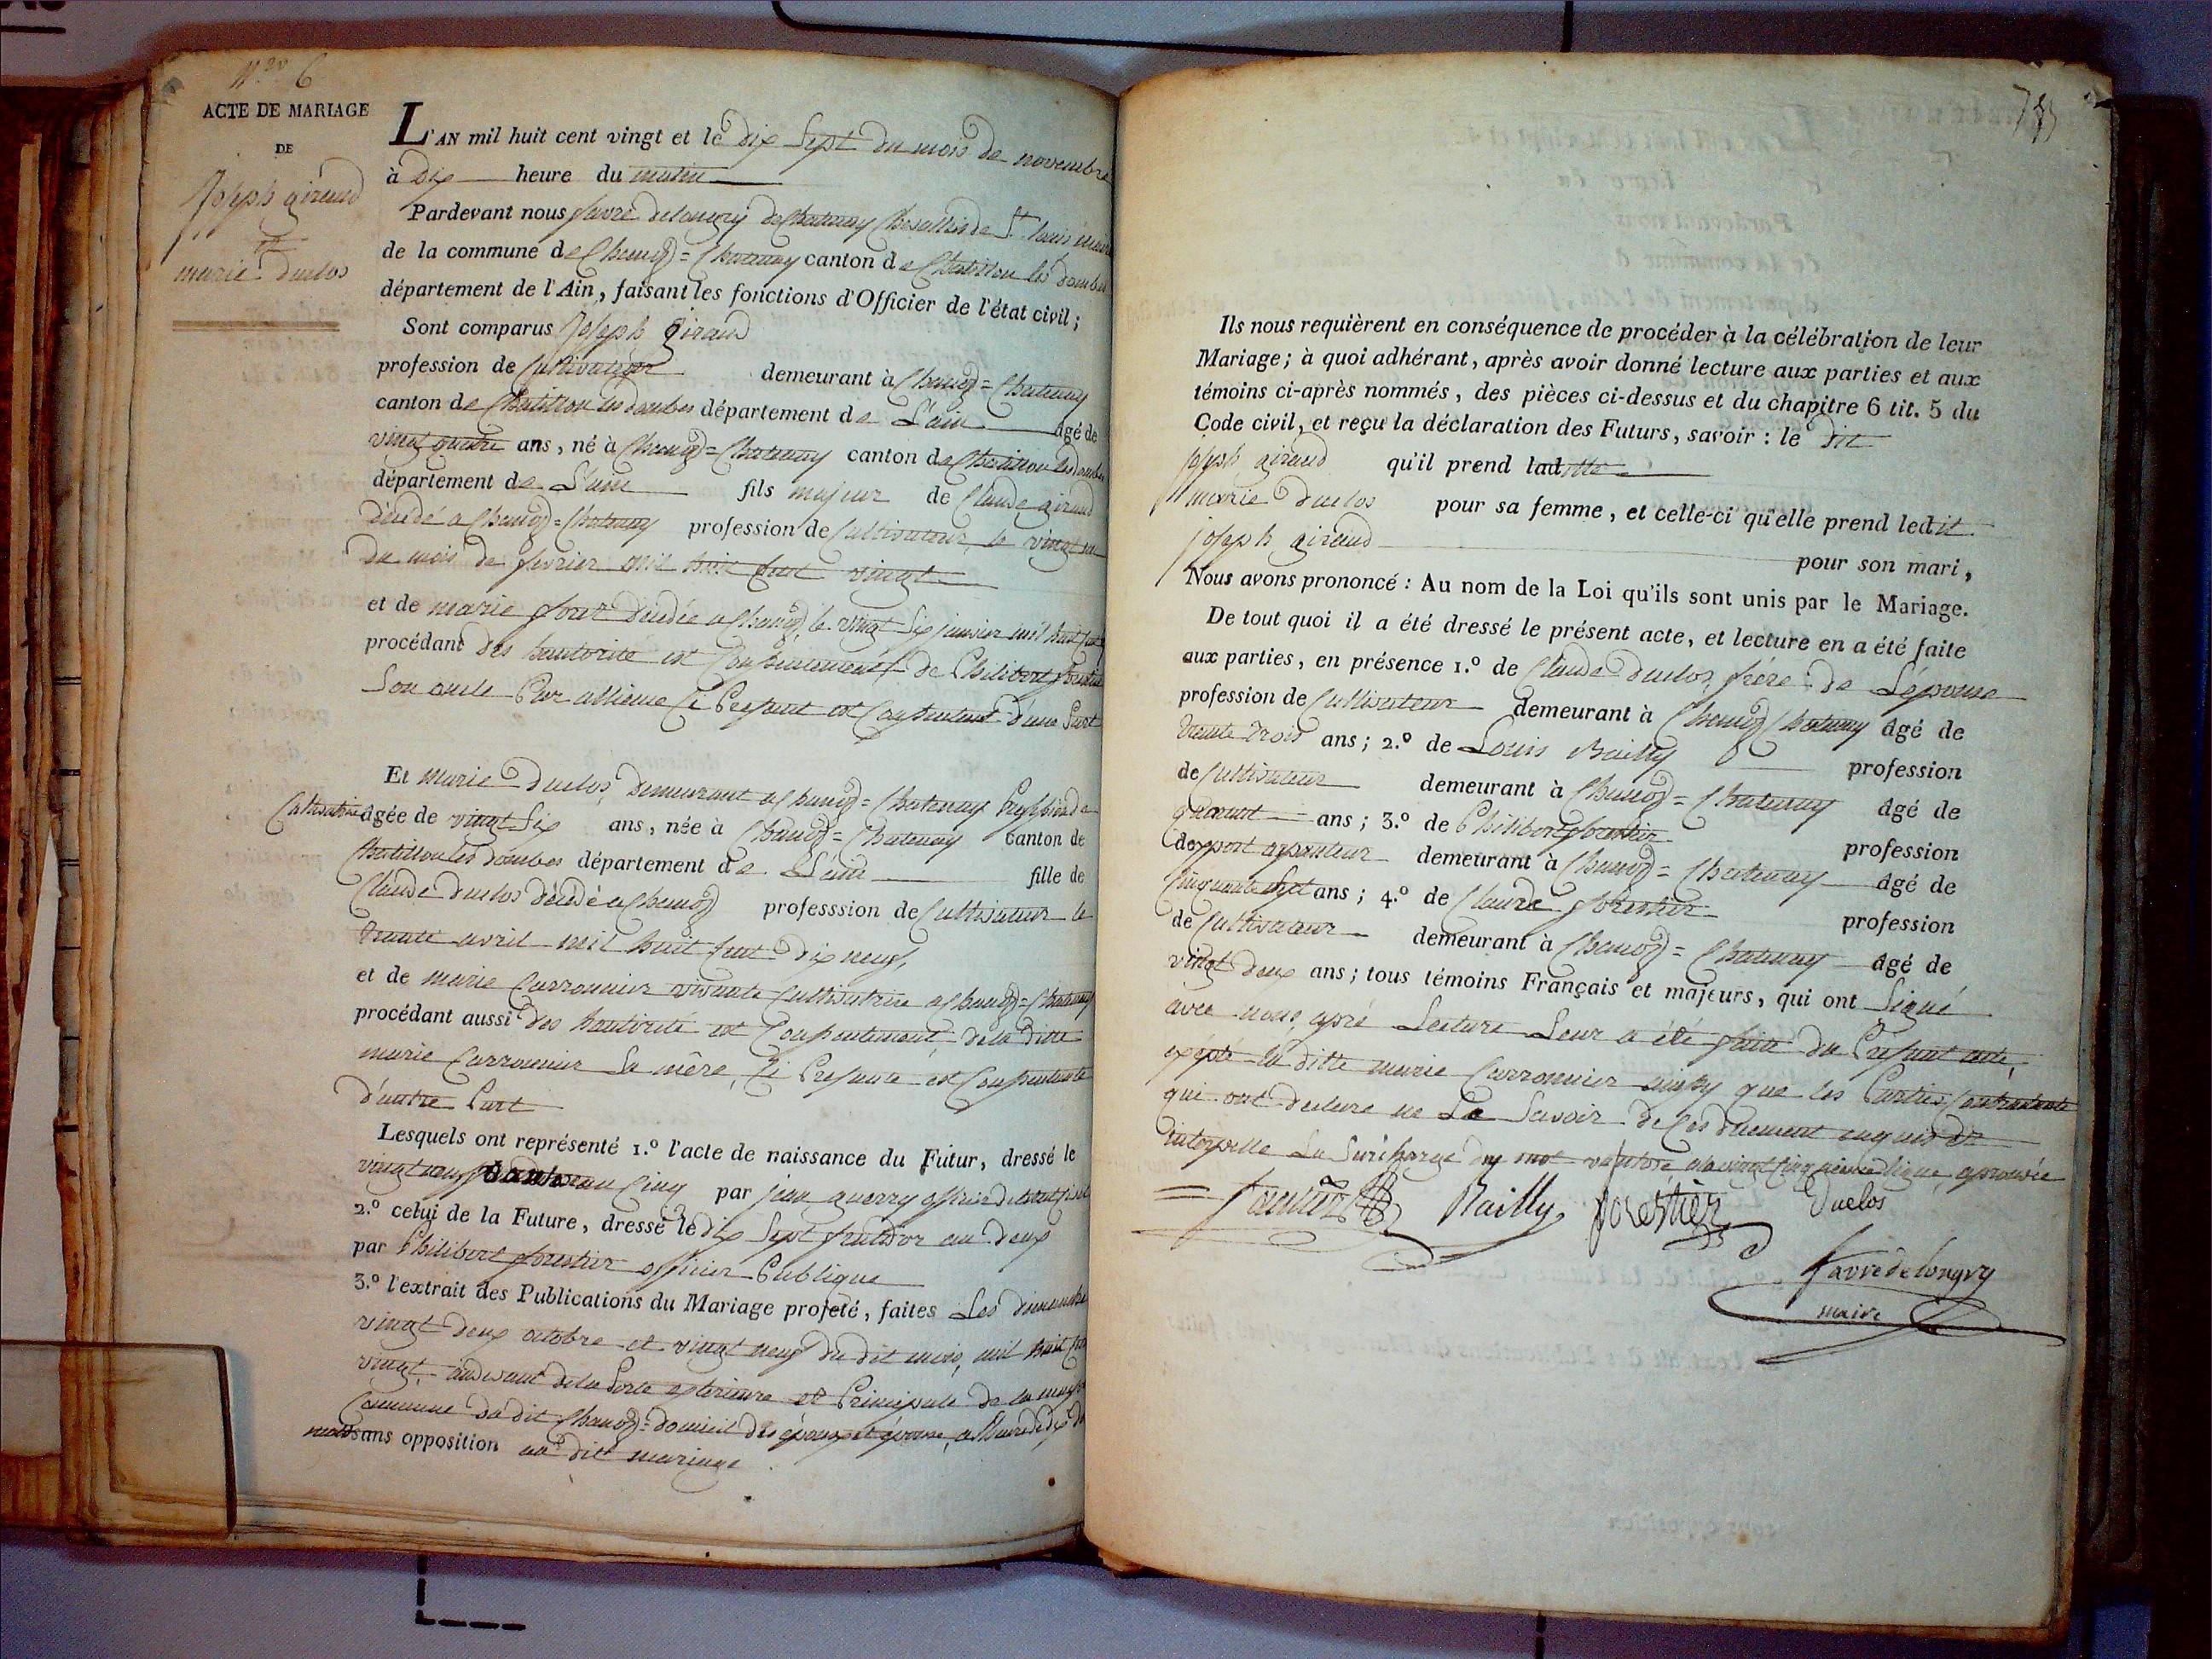 N.º 6
ACTE DE MARIAGE
DE
Joseph giraud
et
marie duclos
L'AN mil huit cent vingt et le dix Sept du mois de novembre
à Dix heure du matin
Pardevant nous favre delongry de Chatenay Chevallier de St. louis maire
de la commune de Chanoz=Chatenay canton de Chatillon les dombes
département de l'Ain, faisant les fonctions d'Officier de l'état civil;
Sont comparus Joseph Giraud
profession de Cultivateur demeurant à Chanoz=Chatenay
canton de Chatillon les dombes département de L'ain âgé de
vingt quatre ans, né à Chanoz=Chatenay canton de Chatillon les dombes
département de L'ain fils majeur de Claude giraud
décédé a Chanoz=Chatenay profession de Cultivateur, le vingt
du mois de fevrier mil huit Cent vingt
et de marie décédée a Chanoz, le vingt Six janvier mil huit Cent
procédant des hautorité et Consentement de Philibert
Son oncle Par allience Ci Present et Consentent d'une Part
Et Marie Duclos, Demeurant a Chanoz=Chatenay Proffession de
Cultivatrice âgée de vingt Six ans, née à Chanoz=Chatenay canton de
Chatillon les dombes département de L'ain fille de
Claude duclos décédé a Chanoz professsion de Cultivateur le
trente avril mil huit Cent dix neuf,
et de marie Carronnier vivante Cultivatrice a Chanoz=Chatenay
procédant aussi des hautorité et Consentement de la ditte
marie Carronnier Sa mère, Ci Presente et Consentente
d'autre Part
Lesquels ont représenté 1.º l'acte de naissance du Futur, dressé le
vingt neuf an Cinq par jean guerry officier de l'etat Civil
2.º celui de la Future, dressé le dix Sept fructidor an deux
par Philibert forestier officier Publique
3.º l'extrait des Publications du Mariage projeté, faites Les dimanche
vingt deux octobre et vingt neuf du dit mois, mil huit Cent
vingt, audevant de la Porte exterieure et Principale de la maison
Commune du dit Chanoz=domicil des époux et épouse, a l'heure de dix du
matin sans opposition au dit mariage
Ils nous requièrent en conséquence de procéder à la célébration de leur
Mariage; à quoi adhérant, après avoir donné lecture aux parties et aux
témoins ci-après nommés, des pièces ci-dessus et du chapitre 6 tit. 5 du
Code civil, et reçu la déclaration des Futurs, savoir: le dit
joseph giraud qu'il prend laditte
marie duclos pour sa femme, et celle-ci qu'elle prend ledit
joseph giraud pour son mari,
Nous avons prononcé: Au nom de la Loi qu'ils sont unis par le Mariage.
De tout quoi il a été dressé le présent acte, et lecture en a été faite
aux parties, en présence 1.º de Claude duclos, frére de L'épouse
profession de Cultivateur demeurant à Chanoz Chatenay âgé de
trente trois ans; 2.º de Louis Bailly profession
de Cultivateur demeurant à Chanoz=Chatenay âgé de
quarant ans; 3.º de Philibert forestier profession
d'expert arpenteur demeurant à Chanoz=Chatenay âgé de
Cinquante Sept ans; 4.º de Claude forestier profession
de Cultivateur demeurant à Chanoz=Chatenay âgé de
vingt deux ans; tous témoins Français et majeurs, qui ont Signé
avec nous, apré Lecture Leur a été faitte du Present acte,
expté la ditte marie Carronnier ainsy que les Parties Contractante
qui ont declare ne Le Savoir de Ces duement enquis et
interpelle La Surcharge du mot ventose a la vingt Cinquieme ligne, aprouvée
Bailly forestier Duclos
favre de longry
maire